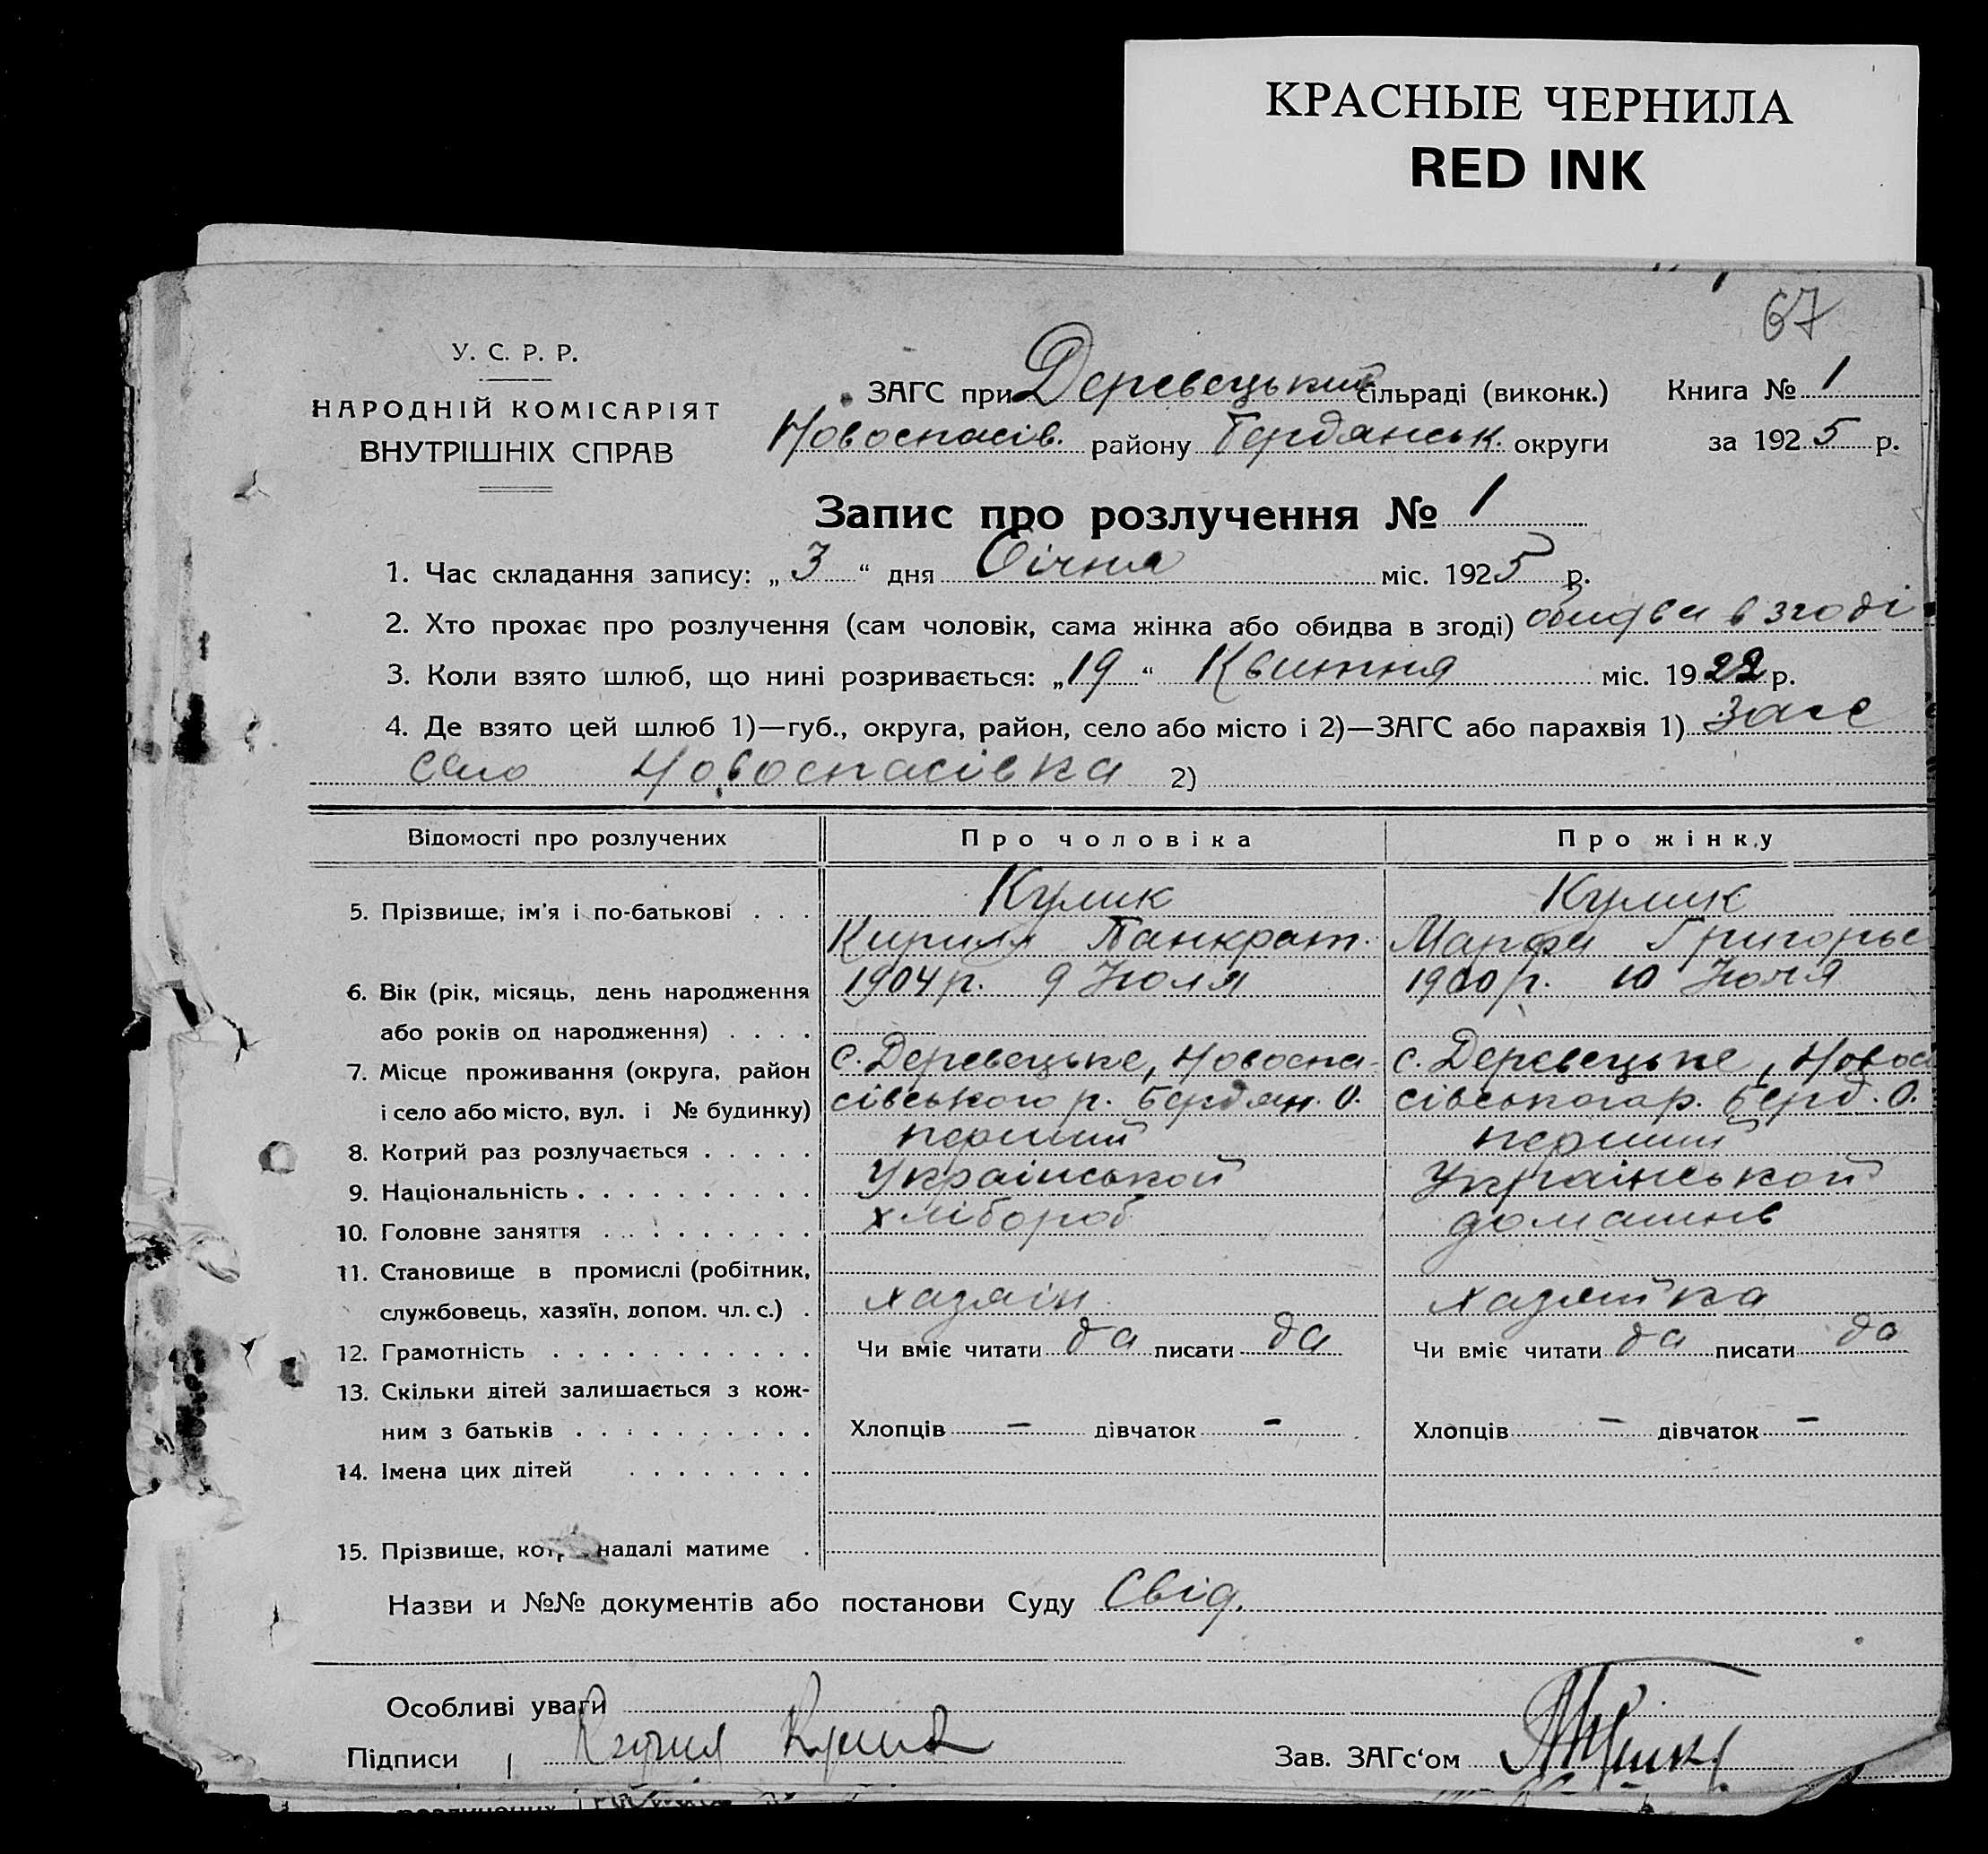 КРАСНЫЕ ЧЕРНИЛА
RED INK
67
У. С. Р. Р.
НАРОДНІЙ КОМІСАРІЯТ
ВНУТРІШНІХ СПРАВ
ЗАГС при Деревецький сільраді (виконк.) Книга № 1
Новоспасів. району Бердянськ. округи за 1925 р.
Запис про розлучення № 1
1. Час складання запису: „3“ дня Січня міс. 1925 р.
2. Хто прохає про розлучення (сам чоловік, сама жінка або обидва в згоді) обидва в згоді
3. Коли взято шлюб, що нині розривається: „19“ Квитня міс. 1922 р.
4. Де взято цей шлюб 1)—губ., округа, район, село або місто і 2)—ЗАГС або парахвія 1) Загс
село Новоспасівка 2)
Відомості про розлучених Про чоловіка Про жінку
5. Прізвище, ім'я і по-батькові . . . Кулик Кулик
Кирилл Панкрат. Марфа Григорье
6. Вік (рік, місяць, день народження 1904 р. 9 Июля 1900 р. 10 Июля
або років од народження) . . . .
7. Місце проживання (округа, район с. Деревецьке, Новоспа- с. Деревецьке, Новос
і село або місто, вул. і № будинку) сівського р. Бердян. О. сівського р. Берд. О.
8. Котрий раз розлучається . . . . . перший перший
9. Національність . . . . . . . . . . Українськой Українськой
10. Головне заняття . . . . . . . . . хлібороб домашнв
11. Становище в промислі (робітник,
службовець, хазяїн, допом. чл. с.) . хазяін хазяйка
12. Грамотність . . . . . . . . . . . Чи вміє читати да писати да Чи вміє читати да писати да
13. Скільки дітей залишається з кож-
ним з батьків . . . . . . . . . . Хлопців — дівчаток - Хлопців — дівчаток —
14. Імена цих дітей . . . . . . . .
15. Прізвище, надалі матиме .
Назви и №№ документів або постанови Суду Свід.
Особливі уваги
Підписи Кирил Кулик Зав. ЗАГс‘ом